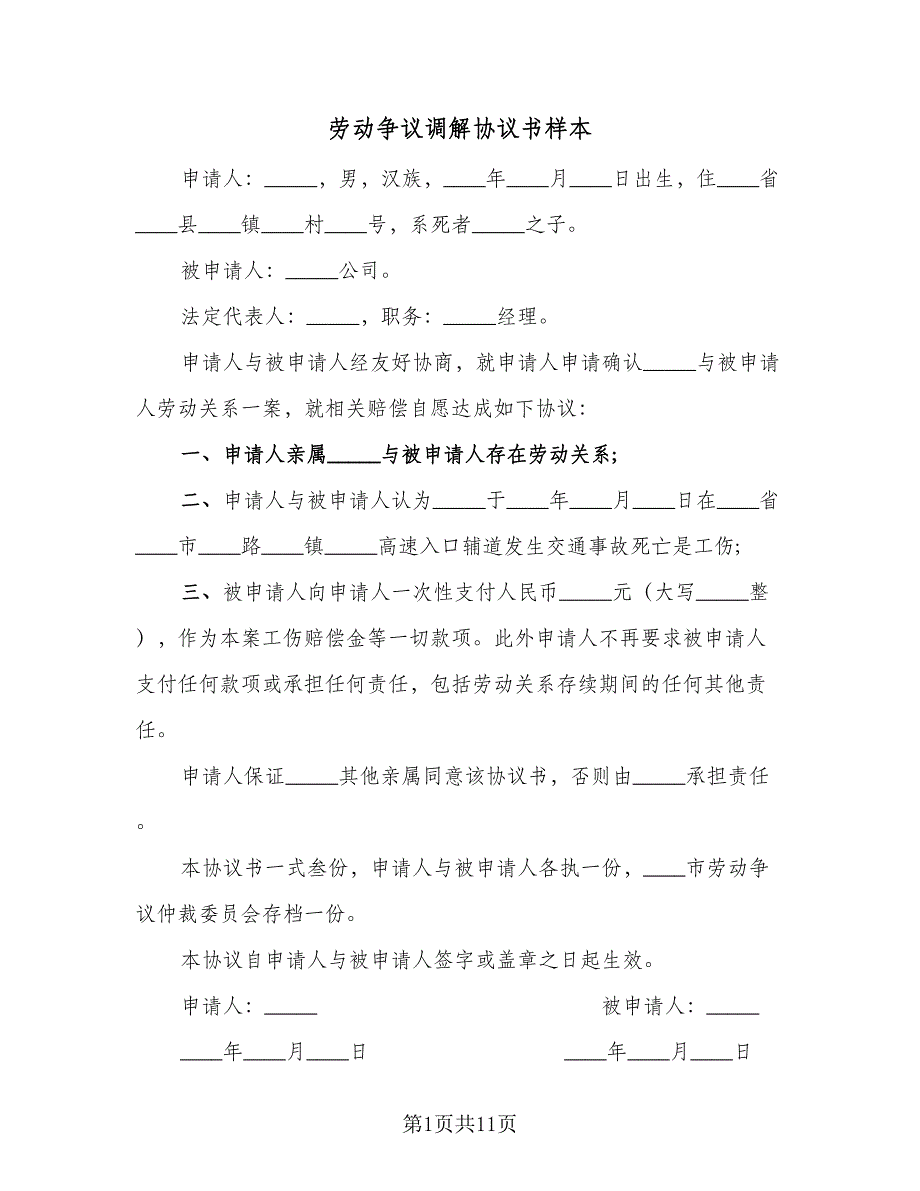 劳动争议调解协议书样本
申请人：_____，男，汉族，____年____月____日出生，住____省
____县____镇____村____号，系死者_____之子。
被申请人：_____公司。
法定代表人：_____，职务：_____经理。
申请人与被申请人经友好协商，就申请人申请确认_____与被申请
人劳动关系一案，就相关赔偿自愿达成如下协议：
一、申请人亲属_____与被申请人存在劳动关系;
二、申请人与被申请人认为_____于____年____月____日在____省
____市____路____镇_____高速入口辅道发生交通事故死亡是工伤;
三、被申请人向申请人一次性支付人民币_____元（大写_____整
），作为本案工伤赔偿金等一切款项。此外申请人不再要求被申请人
支付任何款项或承担任何责任，包括劳动关系存续期间的任何其他责
任。
申请人保证_____其他亲属同意该协议书，否则由_____承担责任
。
本协议书一式叁份，申请人与被申请人各执一份，____市劳动争
议仲裁委员会存档一份。
本协议自申请人与被申请人签字或盖章之日起生效。
申请人：_____ 被申请人：_____
____年____月____日 ____年____月____日
第1页共11页